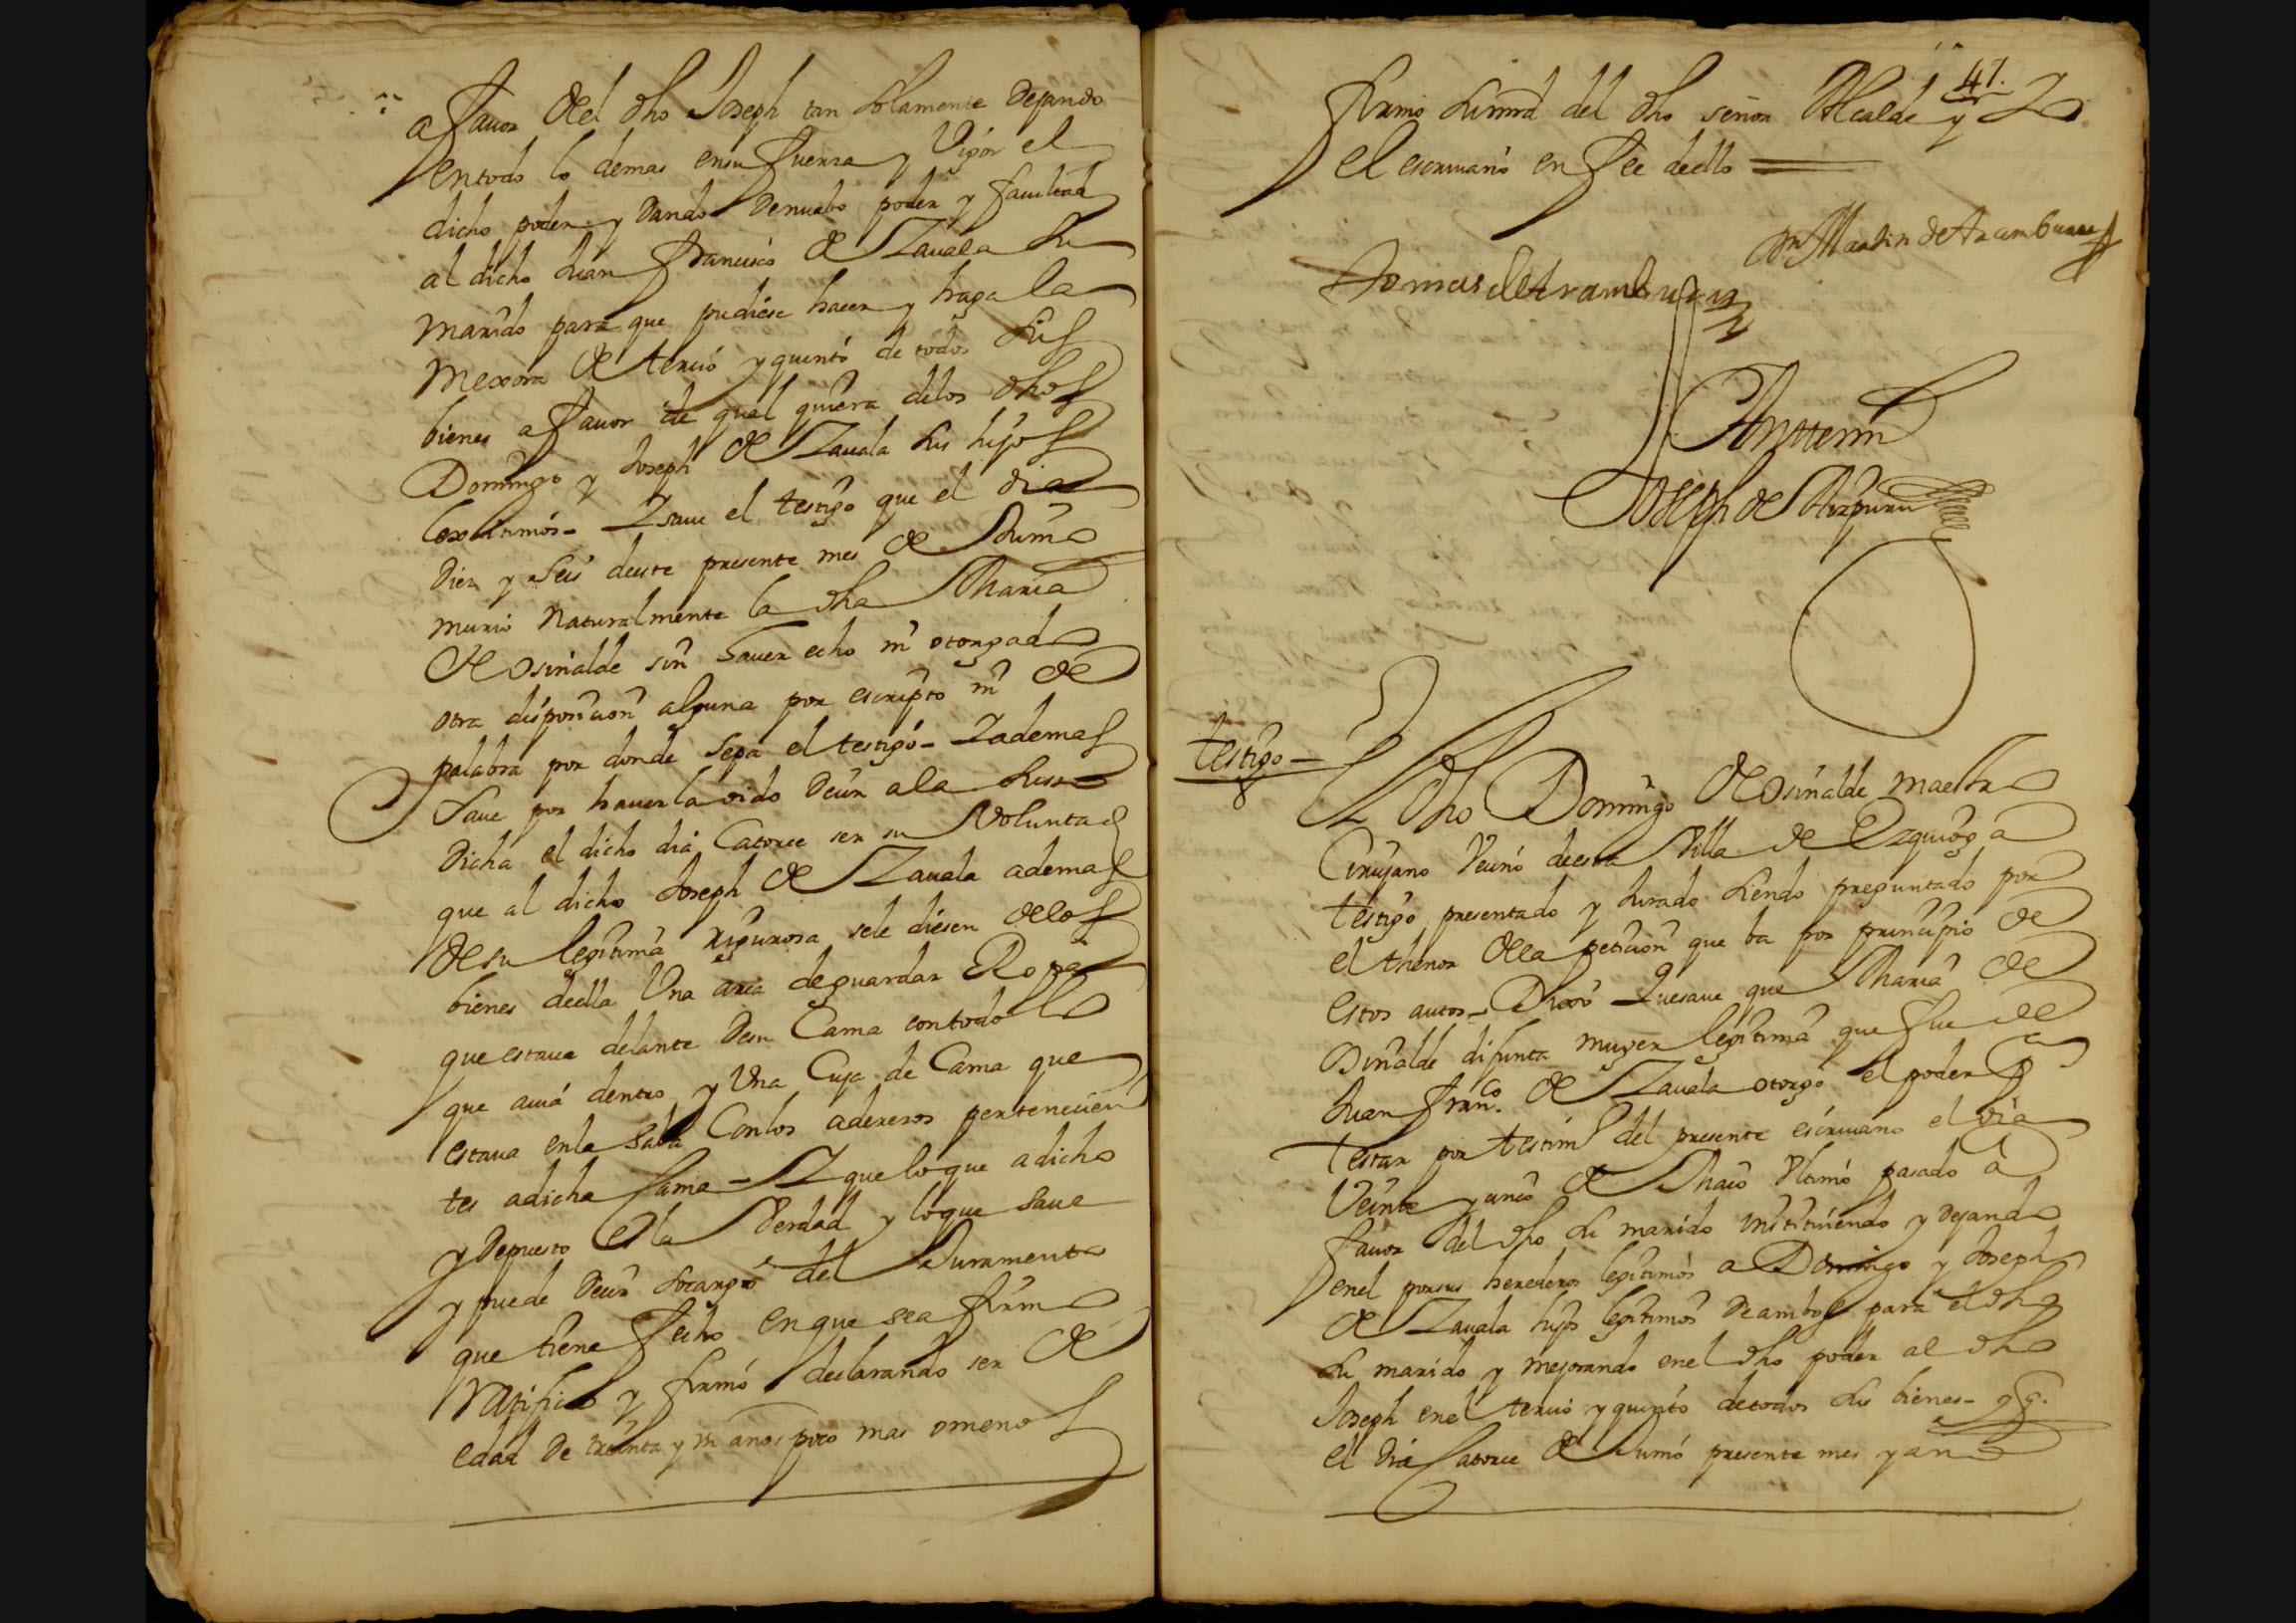 a fauor del dho Joseph tan solamente dejando
en todo lo demas en su fuerza y Vigor el
dicho poder y dando de nuebo poder y facultad
al dicho Juan francisco de Zauala su
marido para que pudiese hacer y haga la
mexora de tercio y quinto de todos sus
bienes a fauor de qual quiera de los dhos
Domingo y Joseph de Zauala sus hijos
lexitimos - Y saue el testigo que el dia
diez y seis de este presente mes de Junio
murio naturalmente la dha Maria
de Osinalde sin hauer echo ni otorgado
otra disposicion alguna por escripto ni de
palabra por donde sepa el testigo - Y ademas
saue por hauerla oido decir a la suso
dicha el dicho dia Catorce ser su Voluntad
que al dicho Joseph de Zauala ademas
de su legitima rigurosa se le diesen de los
bienes de ella Una arca de guardar Ropa
que estaua delante de su Cama con todo lo
que auia dentro y Una Cuja de Cama que
estaua en la sala Con los aderezos pertenecien
tes a dicha Cama - Y que lo que a dicho
y depuesto es la Verdad y lo que saue
y puede decir so cargo del Juramento
que tiene fecho en que se afirmo
ratifico y firmó declarando ser de
edad de treinta y un años poco mas o menos
47.
firmo su mrd del dho señor Alcalde y Yo
el escriuano en fee de ello
Dn Martin de Aramburu
Tomas de Aramburu
Ante mi
Joseph de Aizpuru
testigo -
El dho Domingo de Osinalde maestro
Cirujano Vecino de esta Villa de Ezquioga
testigo presentado y Jurado siendo preguntado por
el thenor de la peticion que ba por principio de
estos autos - Dixo Que saue que Maria de
Osinalde difunta muger legitima que fue de
Juan franco de Zauala otorgó el poder pa
testar por testimo del presente escriuano el dia
Veinte y cinco de Maio Vltimo pasado a
fauor del dho su marido instituiendo y dejando
en el por sus herederos legitimos a Domingo y Joseph
de Zauala hijos legitimos de ambos para el dho
su marido y mejorando en el dho poder al dho
Joseph en el tercio y quinto de todos sus bienes - y q.
el dia Catorce de Junio presente mes y año